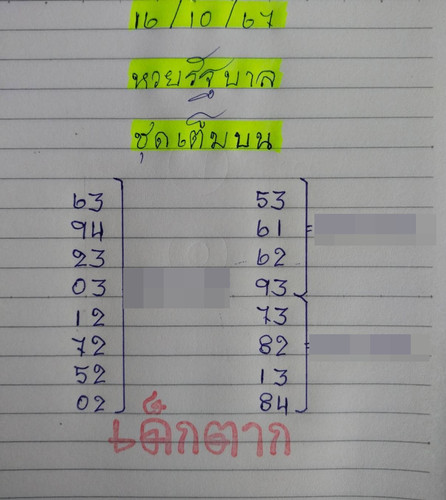 16/10/67
หวยรัฐบาล
ชุดเต็มบน
63 53
94 61 =
23 62
03 93
12 73
72 82 =
52 13
02 84
เด็กตาก